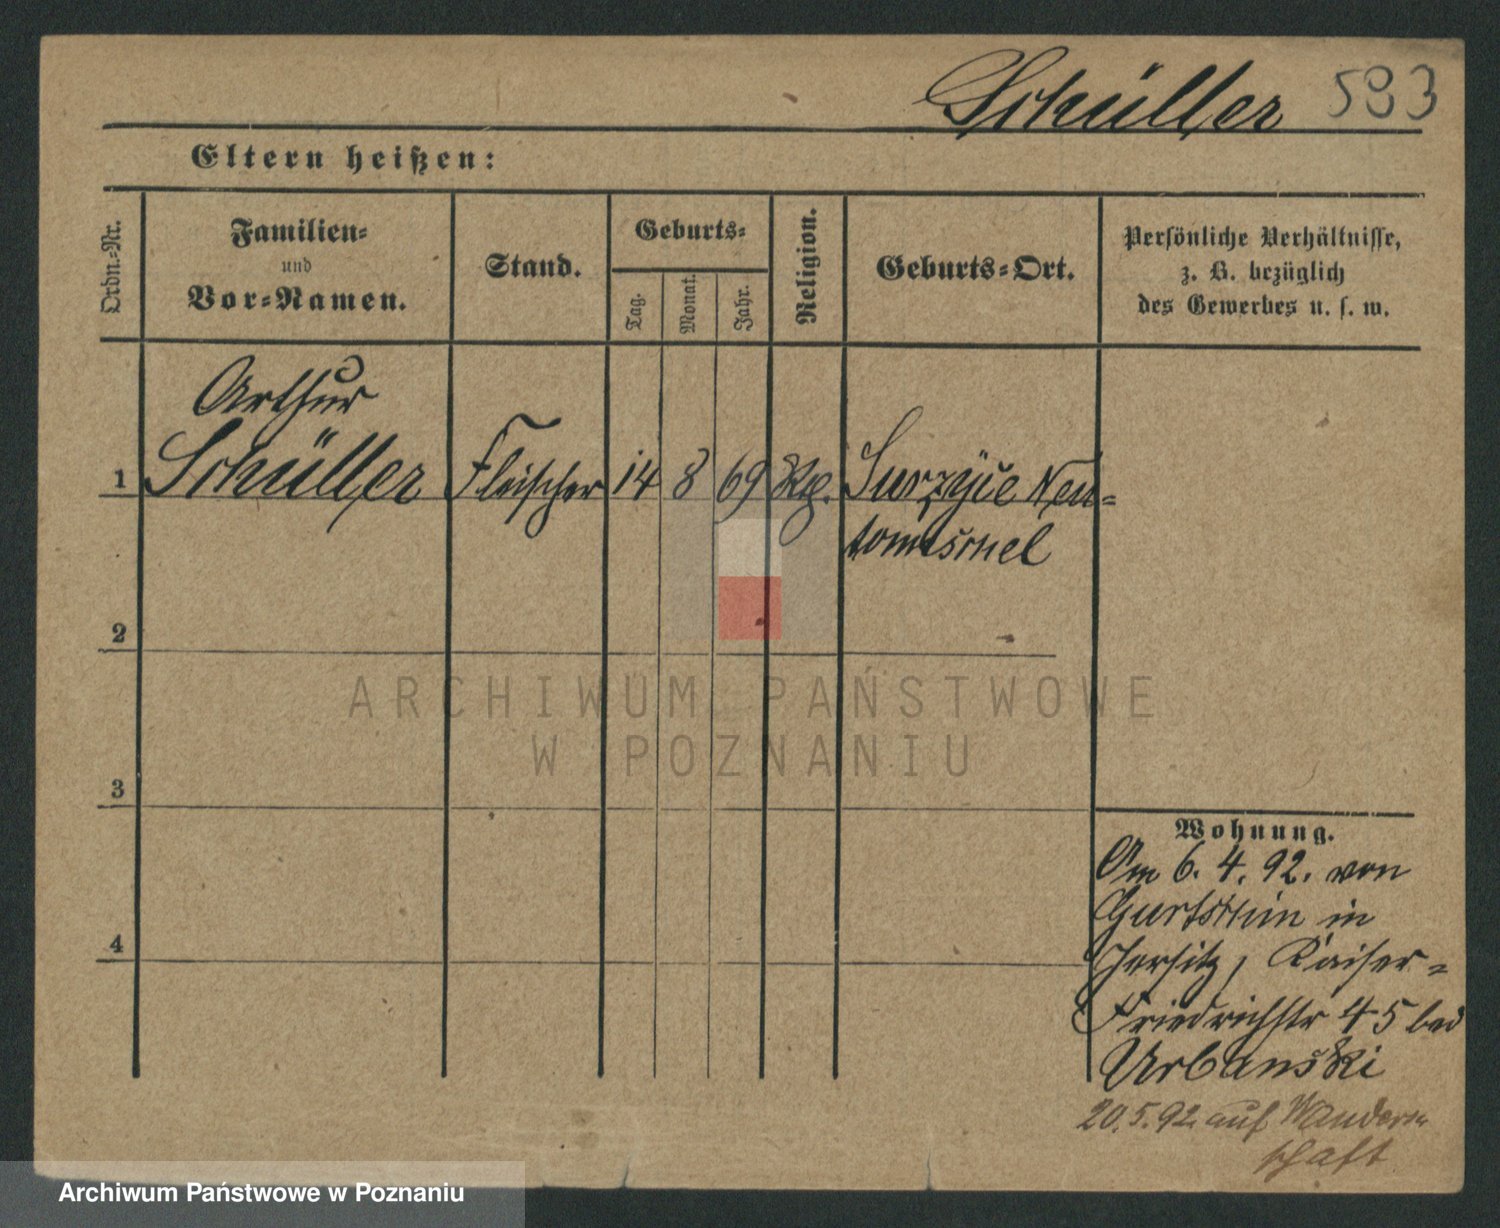 Schüller 593
Eltern heißen:
Ordn.-Nr.
Familien-
und
Vor-Namen.
Stand.
Geburts-
Tag.
Monat.
Jahr.
Religion.
Geburts-Ort.
Persönliche Verhältnisse,
z. B. bezüglich
des Gewerbes u. s. w.
Arthur
1 Schüller Fleischer 14 8 69 Neu-
2
3
4
Wohnung.
Am 6. 4. 92. von
in
Jersitz, Kaiser-
Friedrichstr 45 bei
Urbanski
20.5.92 auf Wander
schaft
ARCHIWUM PAŃSTWOWE
W POZNANIU
Archiwum Państwowe w Poznaniu